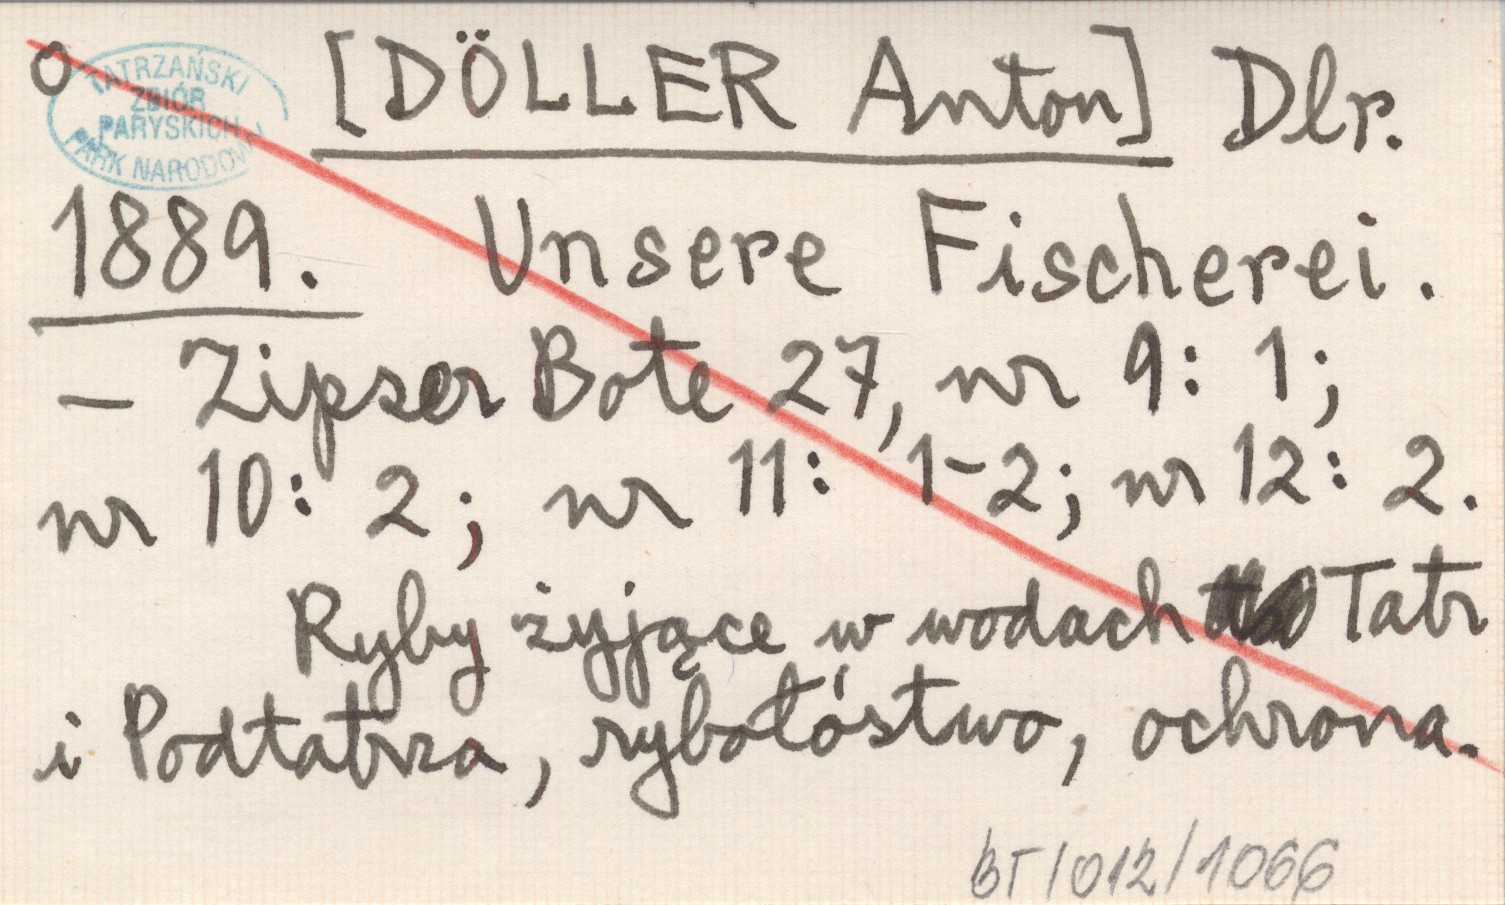 o [DÖLLER Anton] Dlr.
TATRZAŃSKI
ZBIÓR
PARYSKICH
PARK NARODOWY
1889. Unsere Fischerei.
– Zipser Bote 27, nr 9: 1;
nr 10: 2; nr 11: 1-2; nr 12: 2.
Ryby żyjące w wodach Tatr
i Podtatrza, rybołóstwo, ochrona.
BT/012/1066